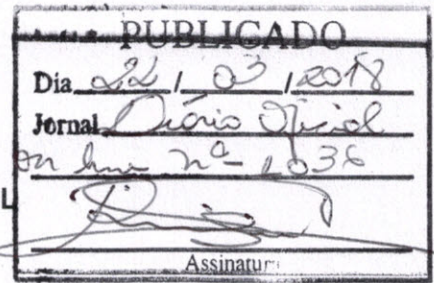 PUBLICADO
Dia 22 / 03 / 2018
Jornal Diário Oficial
on line nº 1036
L
Assinatura